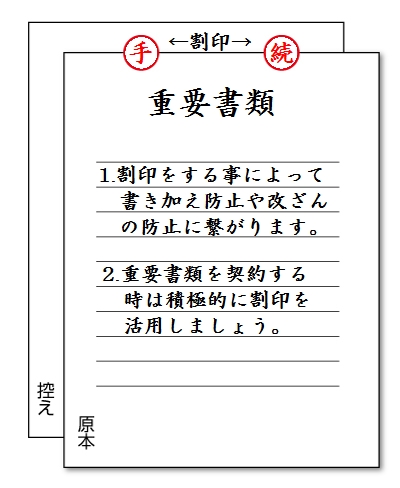 手 ←割印→ 続
重要書類
1.割印をする事によって
書き加え防止や改ざん
の防止に繋がります。
2.重要書類を契約する
時は積極的に割印を
活用しましょう。
控え
原本